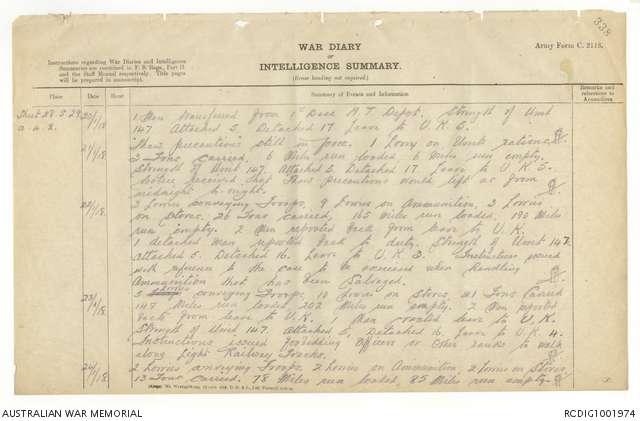 338
WAR DIARY
OR
INTELLIGENCE SUMMARY.
(Erase heading not required.)
Army Form C. 2118.
Instructions regarding War Diaries and Intelligence
Summaries are contained in F. S. Regs., Part II.
and the Staff Manual respectively. Title pages
will be prepared in manuscript.
Place
Date
Hour
Summary of Events and Information
Remarks and
references to
Appendices
Sheet 28.S.29
a.4.2.
20/1/18.
1 Man transferred from 1st Base M.T. Depot. Strength of Unit
147 Attached 5. Detached 17 Leave to U.K. 5.
21/1/18.
"Thaw precautions" still in force. 1 Lorry on Unit rations.
3 Tons carried. 6 Miles run loaded, 6 Miles run empty.
Strength of Unit 147. Attached 5 Detached 17 Leave to U.K 5.
Notice received that Thaw Precautions would lift as from
midnight to-night.
22/1/18.
2 Lorries conveying Troops, 9 Lorries on Ammunition, 3 Lorries
on Stores. 26 Tons carried, 165 Miles run loaded, 190 Miles
run empty. 2 Men reported back from leave to U.K.
1 detached man reported back to duty. Strength of Unit 147.
Attached 5. Detached 16. Leave to U.K. 3. Instructions issued
with reference to the care to be exercised when handling
Ammunition that has been Salvaged.
23/1/18.
5 Lorries conveying Troops, 10 Lorries on Stores 21 Tons Carried
147 Miles run loaded 202 Miles run empty. 2 Men reported
back from leave to U.K. Men granted leave to U.K.
Strength of Unit 147. Attached 5, Detached 16. Leave to U.K 4.
Instructions issued forbidding Officers or Other ranks to walk
along Light Railway Tracks.
24/1/18.
2 Lorries conveying Troops. 2 Lorries on Ammunition, 2 Lorries on Stores,
13 Tons Carried. 78 Miles run loaded, 85 Miles run empty.
AUSTRALIAN WAR MEMORIAL
RCDIG1001974